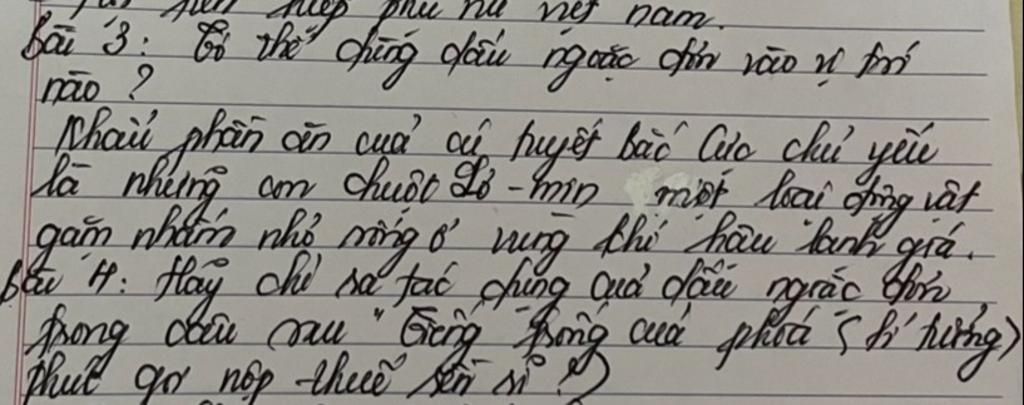 hiệp phụ nữ việt nam.
Bài 3: Có thể dùng dấu ngoặc đơn vào vị trí
nào?
Khẩu phần ăn cuả cú tuyết bắc Cực chủ yếu
là những con chuột Lơ-min một loài động vật
gặm nhấm nhỏ sống ở vùng khí hậu lạnh giá.
Bài 4: Hãy chỉ ra tác dụng cuả dấu ngoặc đơn
trong câu sau "Tiếng trống cuả phìa (lí trưởng)
thúc gọi nộp thuế rền rĩ?)